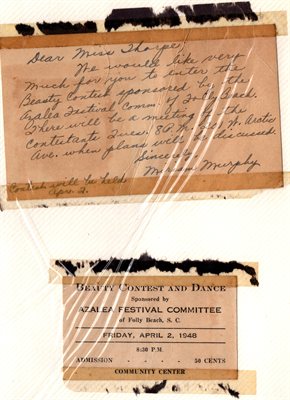 Dear Miss Thorpe,
We would like very
much for you to enter the
Beauty Contest sponsored by the
Azalea Festival Comm. of Folly Beach.
There will be a meeting of the
contestants Tues. 8 P.M. W. Arctic
Ave. when plans will be discussed.
Sincerely
Miriam Murphy
Contest will be held
Apr. 2.
BEAUTY CONTEST AND DANCE
Sponsored by
AZALEA FESTIVAL COMMITTEE
of Folly Beach, S. C.
FRIDAY, APRIL 2, 1948
8:30 P.M.
ADMISSION - - - - 50 CENTS
COMMUNITY CENTER